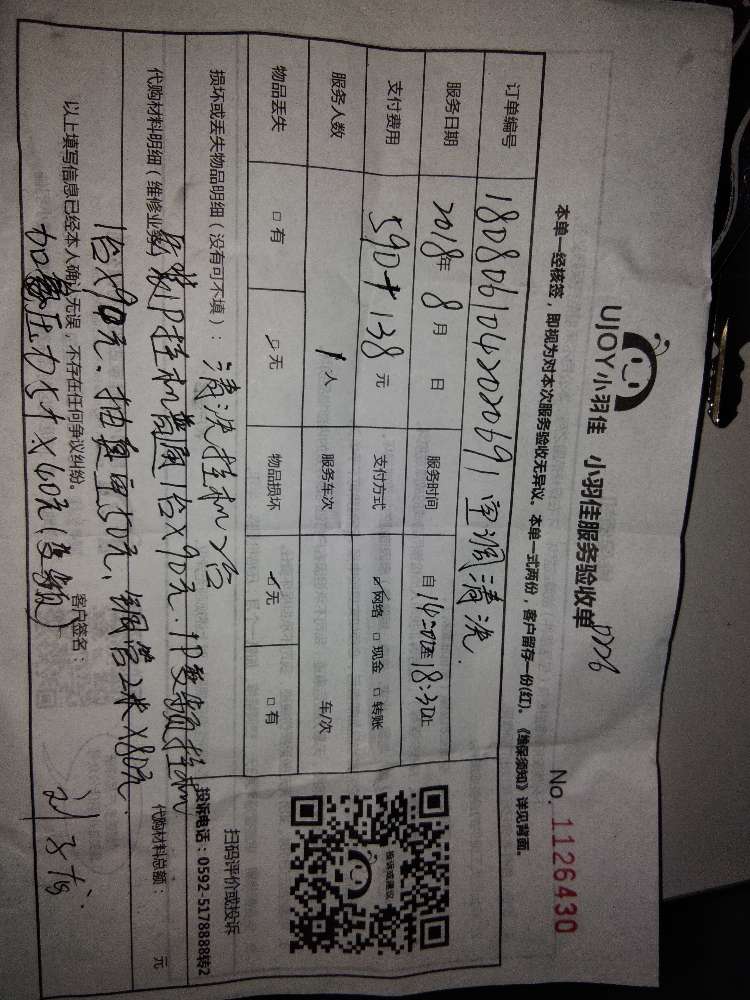 UJOY小羽佳 小羽佳服务验收单
No. 1126430
本单一经核签，即视为对本次服务验收无异议。本单一式两份，客户留存一份(红)。《维保须知》详见背面。
订单编号 180806104202020691 空调清洗.
服务日期 2018年 8月 日 服务时间 自14:00至18:30止
支付费用 590+138 元 支付方式 ☑网络 □现金 □转账
服务人数 1人 服务车次 车/次
物品丢失 □有 ☑无 物品损坏 ☑无 □有
投诉或建议
扫码评价或投诉
投诉电话：0592-5178888转2
损坏或丢失物品明细（没有可不填）： 清洗挂机2台
代购材料明细（维修业务） 拆装1P挂机 1台×90元. 1P变频挂机
代购材料总额： 元
1台×90元. 抽真空50元. 铜管2米×80元.
以上填写信息已经本人确认无误，不存在任何争议纠纷。
客户签名：
加 压力 ×60元(变频)